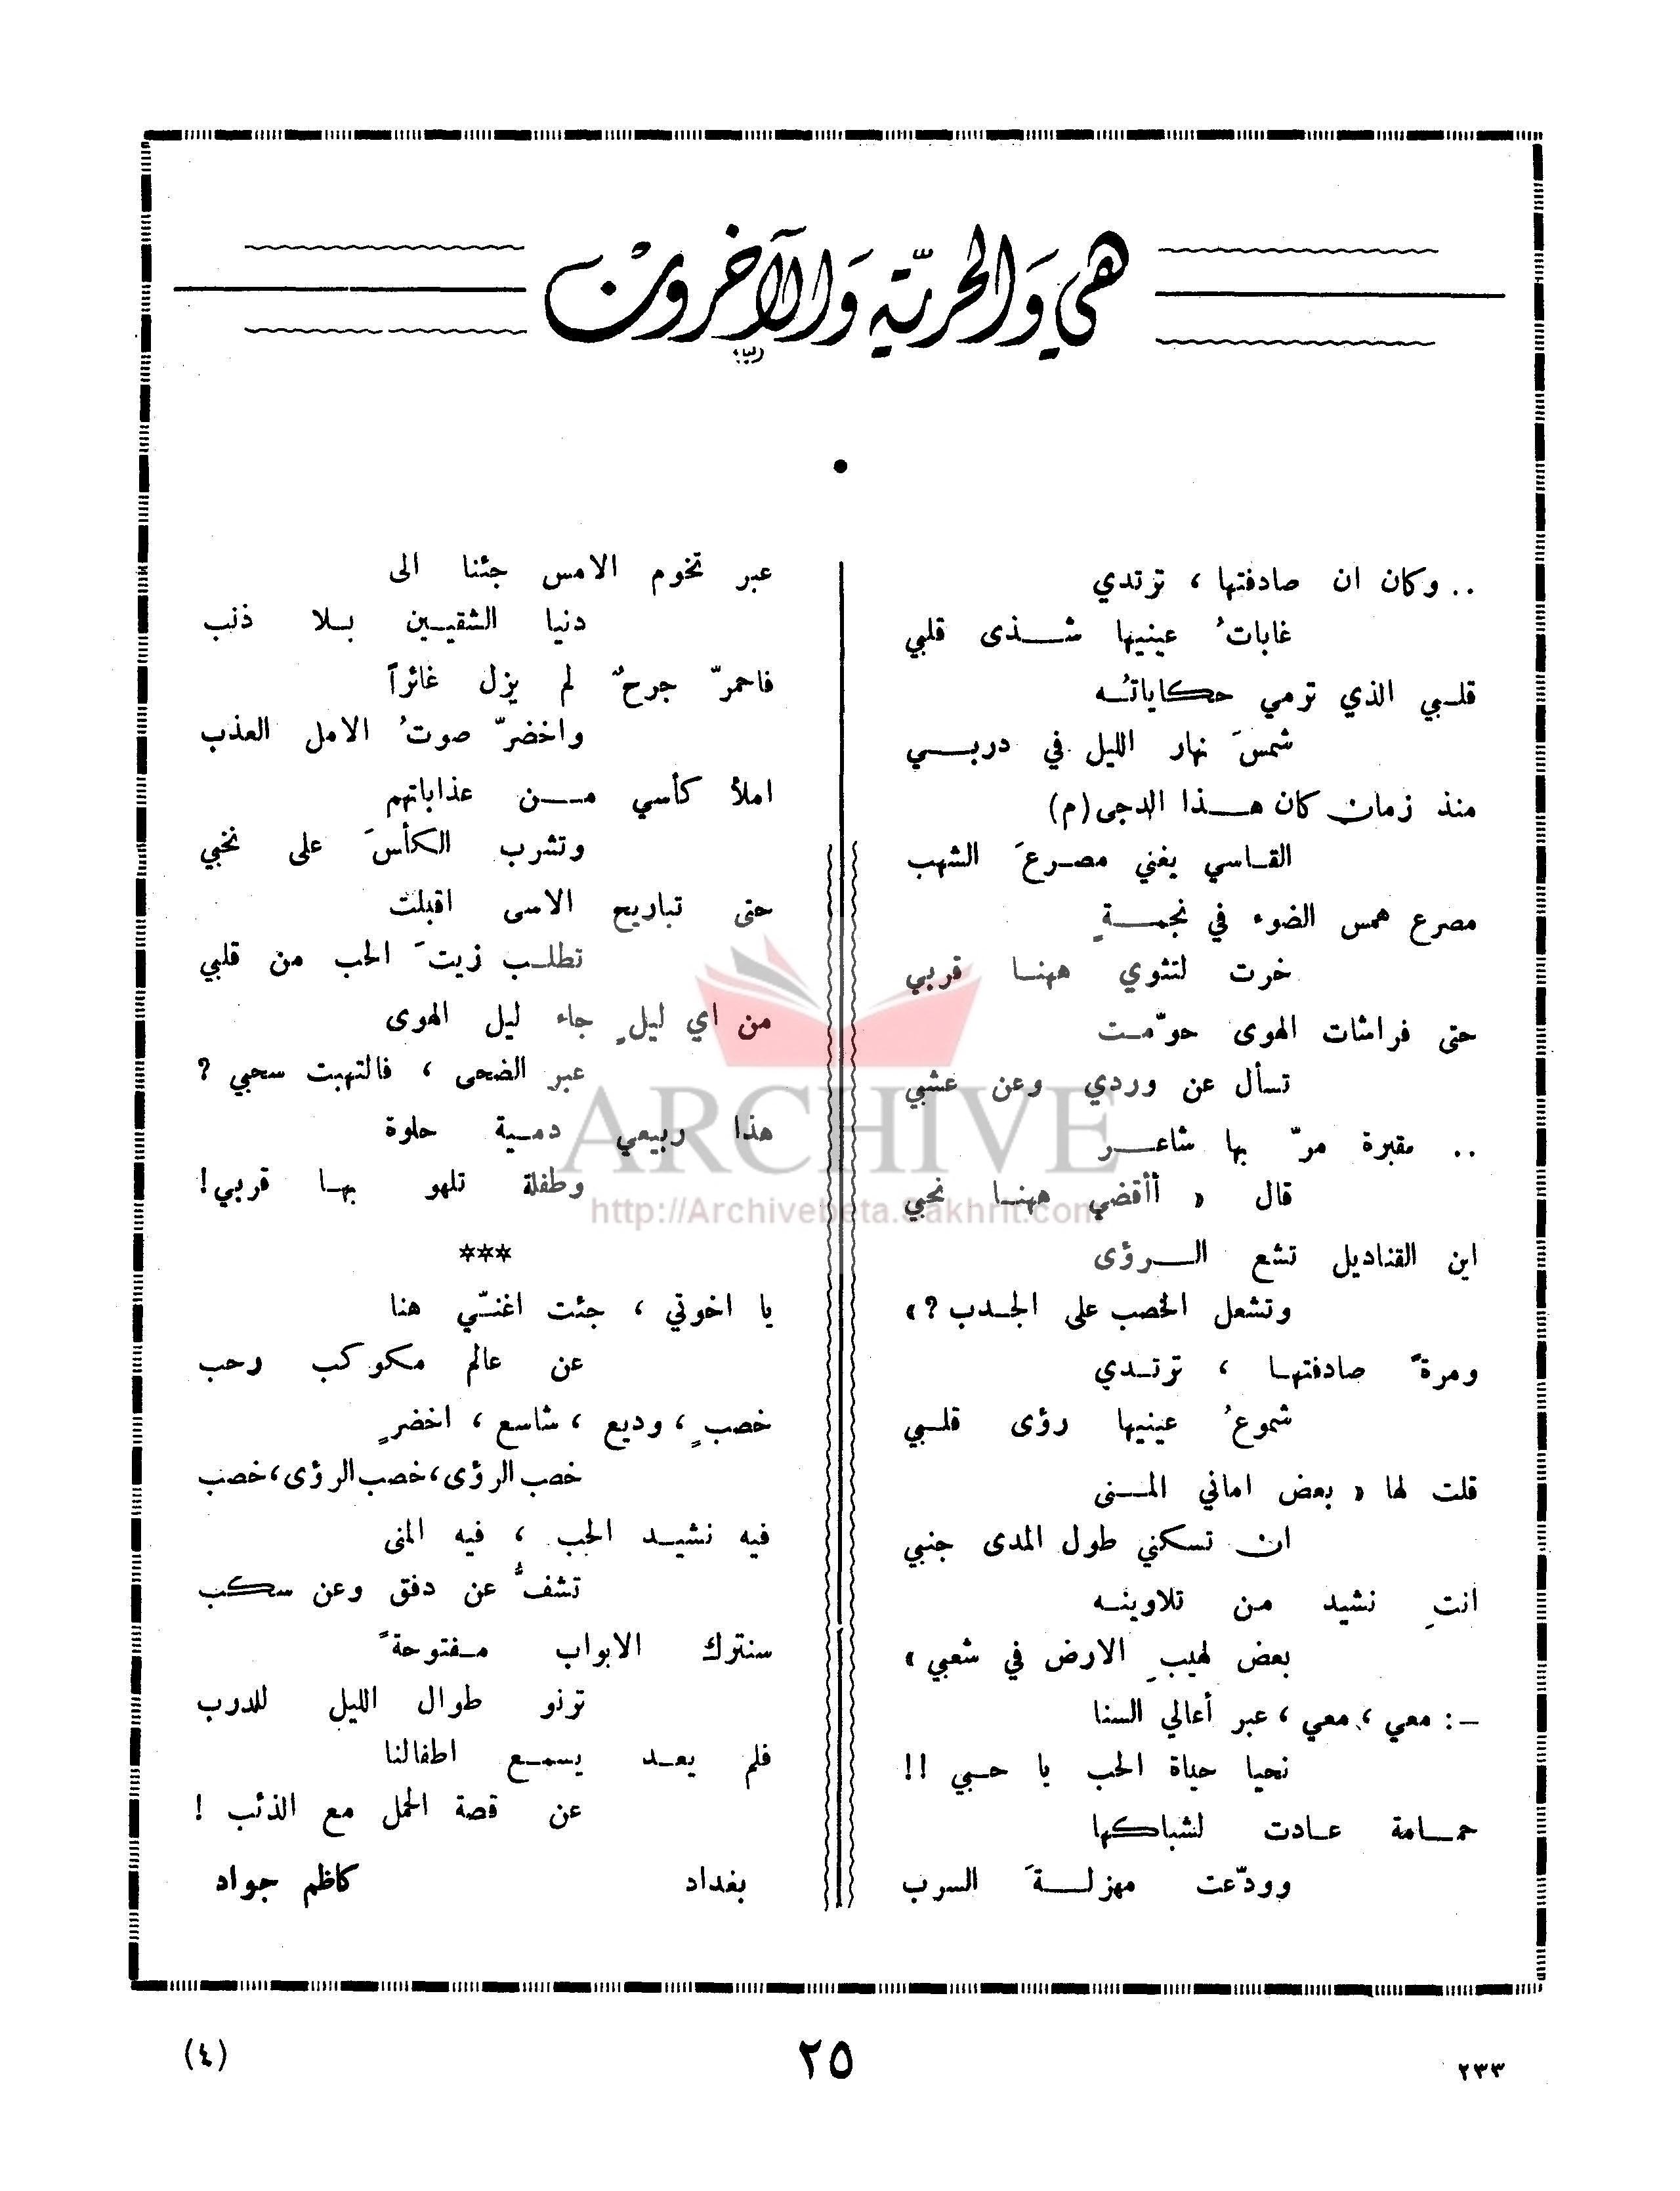 هي وَالحريّة وَالآخرون
.. وكان ان صادفتها ، ترتدي
غاباتُ عينيها شـذى قلبي
قلبي الذي ترمي حكاياتُه
شمسَ نهار الليل في دربي
منذ زمان كان هذا الدجى (م)
القاسي يغني مصرعَ الشهب
مصرع همس الضوء في نجمةٍ
خرت لتثوي ههنا قربي
حتى فراشات الهوى حوّمت
تسأل عن وردي وعن عشبي
.. مقبرة مرّ بها شاعر
قال « أأقضي ههنا نحبي
اين القناديل تشع الرؤى
وتشعل الخصب على الجدب ? »
ومرةً صادفتها ، ترتدي
شموعُ عينيها رؤى قلبي
قلت لها « بعض اماني المنى
ان تسكني طول المدى جنبي
انتِ نشيد من تلاوينه
بعض لهيبِ الارض في شعبي »
–: معي ، معي ، عبر أعالي السنا
نحيا حياة الحب يا حبي !!
حمامة عادت لشباكها
وودّعت مهزلةَ السرب
عبر تخوم الامس جئنا الى
دنيا الشقيين بلا ذنب
فاحمرّ جرحٌ لم يزل غائراً
واخضرّ صوتُ الامل العذب
املأ كأسي من عذاباتهم
وتشرب الكأسَ على نخبي
حتى تباريح الاسى اقبلت
تطلب زيتَ الحب من قلبي
من اي ليلٍ جاء ليل الهوى
عبر الضحى ، فالتهبت سحبي ?
هذا ربيعي دمية حلوة
وطفلة تلهو بها قربي!
***
يا اخوتي ، جئت اغنّي هنا
عن عالم مكوكب رحب
خصبٍ ، وديع ، شاسع ، اخضرٍ
خصب الرؤى، خصب الرؤى، خصب
فيه نشيد الحب ، فيه المنى
تشفُّ عن دفق وعن سكب
سنترك الابواب مفتوحةً
ترنو طوال الليل للدرب
فلم يعد يسمع اطفالنا
عن قصة الحمل مع الذئب !
بغداد كاظم جواد
ARCHIVE
http://Archivebeta.Sakhrit.com
٢٣٣ ٢٥ (٤)